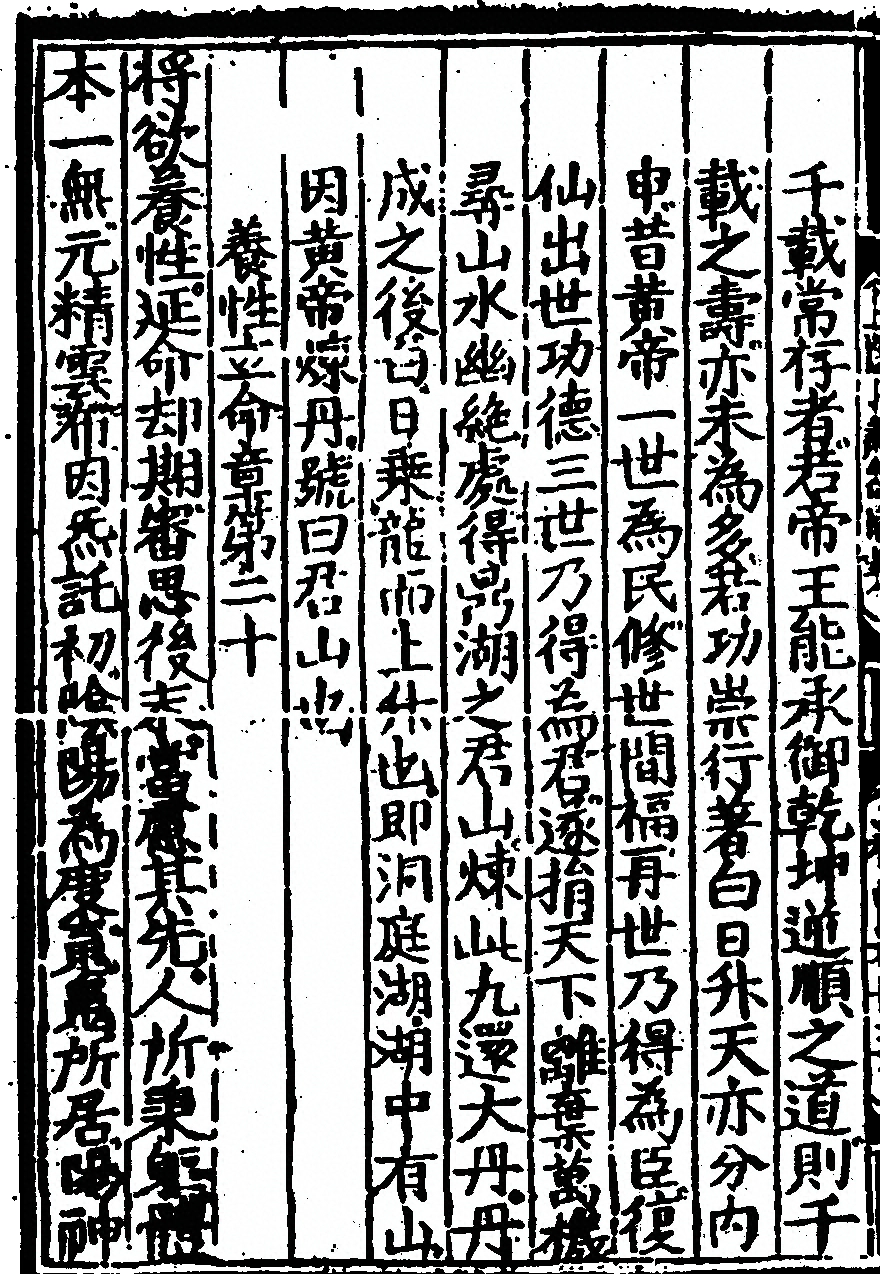 千載常存者若帝王能承御乾坤逆順之道則千
載之壽亦未為多若功崇行著白日升天亦分內
申昔黃帝一世為民修世間福再世乃得為臣復
仙出世功德三世乃得為君遂捐天下離棄萬機
尋山水幽絕處得鼎湖之君山煉此九還大丹丹
成之後白日乘龍而上升也即洞庭湖湖中有山
因黃帝煉丹號曰君山也
養性立命章第二十
將欲養性延命却期審思後末當慮其先人所秉軀體
本一無元精雲布因炁託初陰陽為度魂魄所居陽神